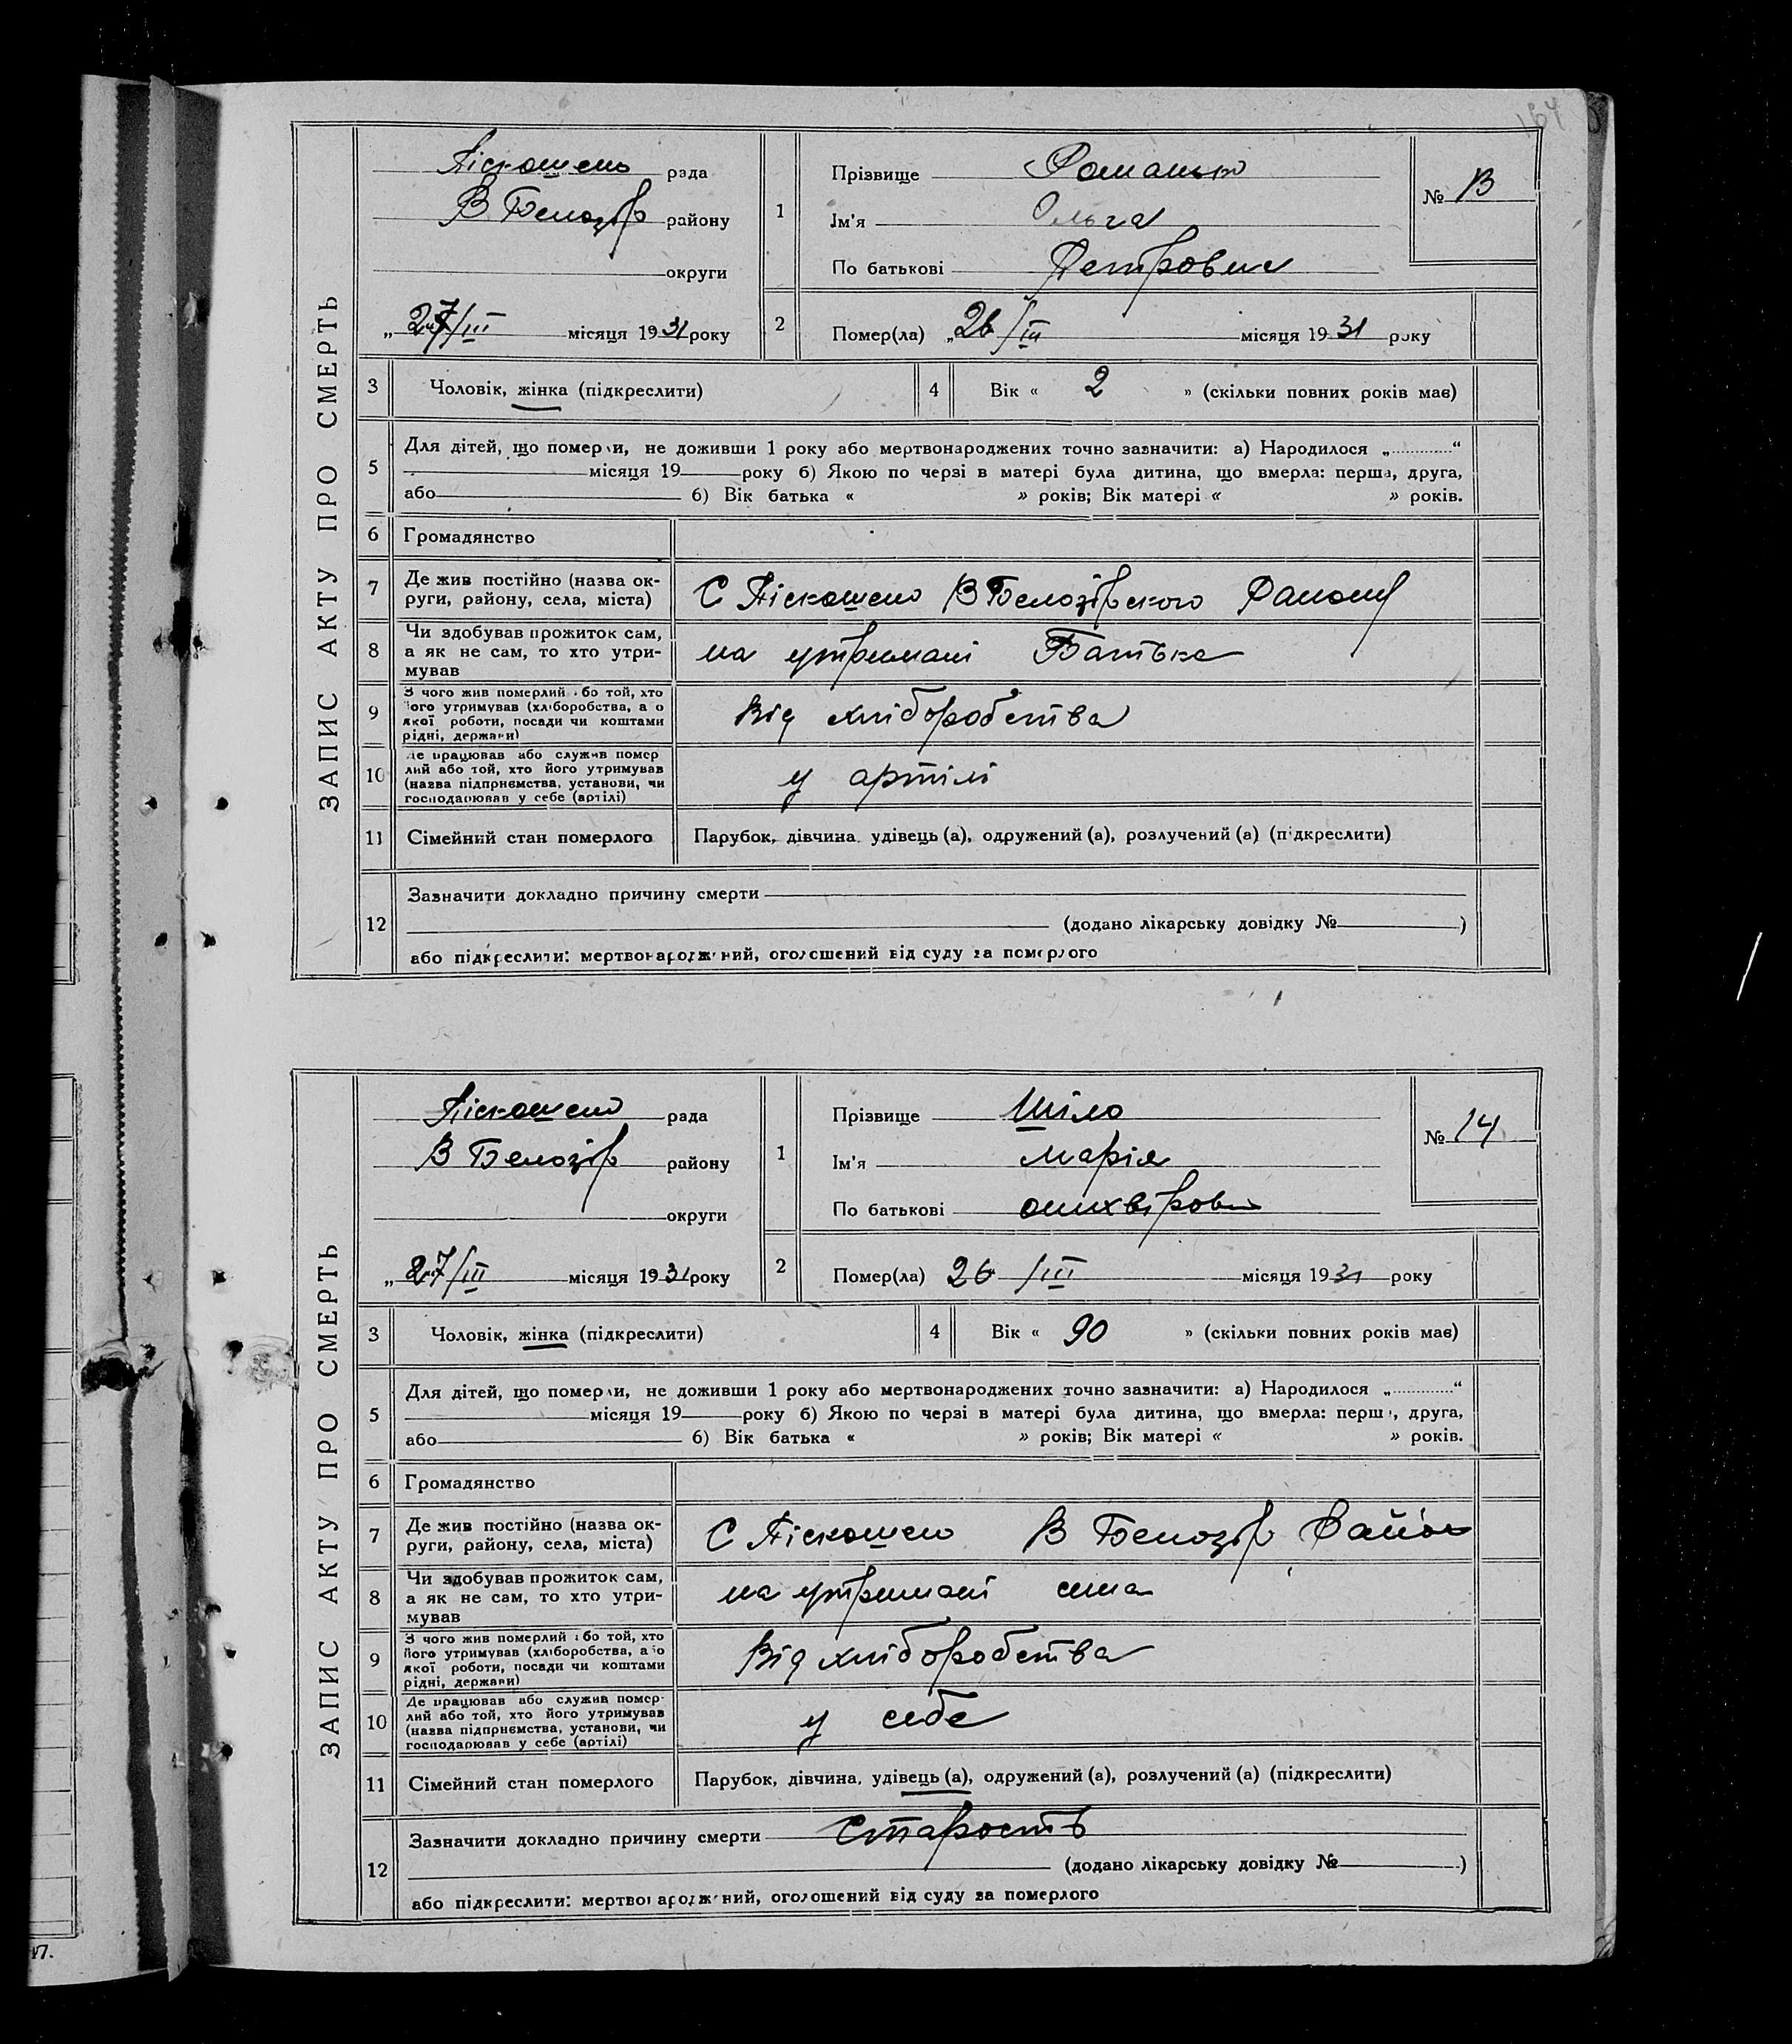 164
ЗАПИС АКТУ ПРО СМЕРТЬ
Піскошено рада
В Белозір району
округи
„27/III місяця 1931 року
1
Прізвище Романько
Ім'я Ольга
По батькові Петровна
№ 13
2
Помер(ла) „26/III місяця 1931 року
3 Чоловік, жінка (підкреслити)
4 Вік « 2 » (скільки повних років має)
5 Для дітей, що померли, не доживши 1 року або мертвонароджених точно зазначити: а) Народилося „............“
місяця 19 року б) Якою по черзі в матері була дитина, що вмерла: перша, друга,
або б) Вік батька « » років; Вік матері « » років.
6 Громадянство
7 Де жив постійно (назва ок-
руги, району, села, міста)
С Піскошено В Белозірского
8 Чи здобував прожиток сам,
а як не сам, то хто утри-
мував
на утримані Батька
9 З чого жив померлий або той, хто
його утримував (хліборобства, або
якої роботи, посади чи коштами
рідні, держави)
Від хліборобства
10 Де працював або служив помер
лий або той, хто його утримував
(назва підприємства, установи, чи
господарював у себе (артілі)
у артілі
11 Сімейний стан померлого Парубок, дівчина. удівець (а), одружений (а), розлучений (а) (підкреслити)
12 Зазначити докладно причину смерти
(додано лікарську довідку № )
або підкреслити: мертвонароджений, оголошений від суду за померлого
ЗАПИС АКТУ ПРО СМЕРТЬ
Піскошено рада
В Белозір району
округи
„27/III місяця 1931 року
1
Прізвище Шило
Ім'я Марія
По батькові
№ 14
2
Помер(ла) 26/III місяця 1931 року
3 Чоловік, жінка (підкреслити)
4 Вік « 90 » (скільки повних років має)
5 Для дітей, що померли, не доживши 1 року або мертвонароджених точно зазначити: а) Народилося „............“
місяця 19 року б) Якою по черзі в матері була дитина, що вмерла: перша, друга,
або б) Вік батька « » років; Вік матері « » років.
6 Громадянство
7 Де жив постійно (назва ок-
руги, району, села, міста)
С Піскошено В Белозір Район
8 Чи здобував прожиток сам,
а як не сам, то хто утри-
мував
на утримані сина
9 З чого жив померлий або той, хто
його утримував (хліборобства, або
якої роботи, посади чи коштами
рідні, держави)
Від хліборобства
10 Де працював або служив помер-
лий або той, хто його утримував
(назва підприємства, установи, чи
господарював у себе (артілі)
у себе
11 Сімейний стан померлого Парубок, дівчина, удівець (а), одружений (а), розлучений (а) (підкреслити)
12 Зазначити докладно причину смерти Старость
(додано лікарську довідку № )
або підкреслити: мертвонароджений, оголошений від суду за померлого